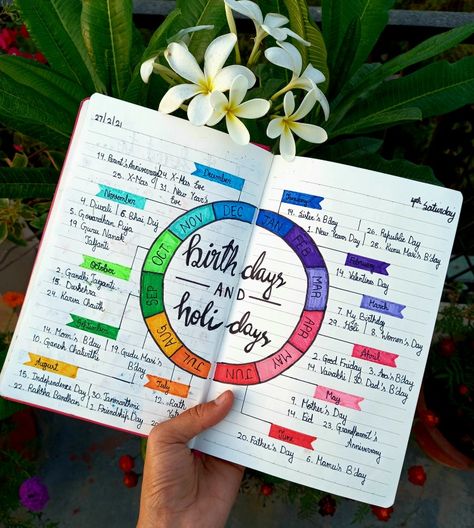 27/2/21
14 Parent's Anniversary
24 X-Mas Eve
25 X-Mas
31 New Year's Eve
December
November
4 Diwali
6 Bhai Dij
5 Govardhan Puja
19 Guru Nanak Jayanti
October
2 Gandhi Jayanti
15 Dushehra
24 Karva Chauth
14 Mom's B'day
10 Ganesh Chaturthi
19 Guddu Masi's B'day
August
15 Independence Day
22 Raksha Bandhan
30 Janmasthmi
1 Friendship Day
July
12
birthdays
AND
holidays
DEC
JAN
FEB
MAR
APR
MAY
JUN
JUL
AUG
SEP
OCT
NOV
4th Saturday
January
19 Sister's B'day
1 New Year Day
26 Republic Day
28 Kanu Masi's B'day
February
14 Valentine Day
March
7 My Birthday
29 Holi
8 Women's Day
April
2 Good Friday
14 Vaisakhi
3 Ava's B'day
30 Dad's B'day
May
9 Mother's Day
14 Eid
23 Grandparent's Anniversary
20 Father's Day
6 Mamu's B'day